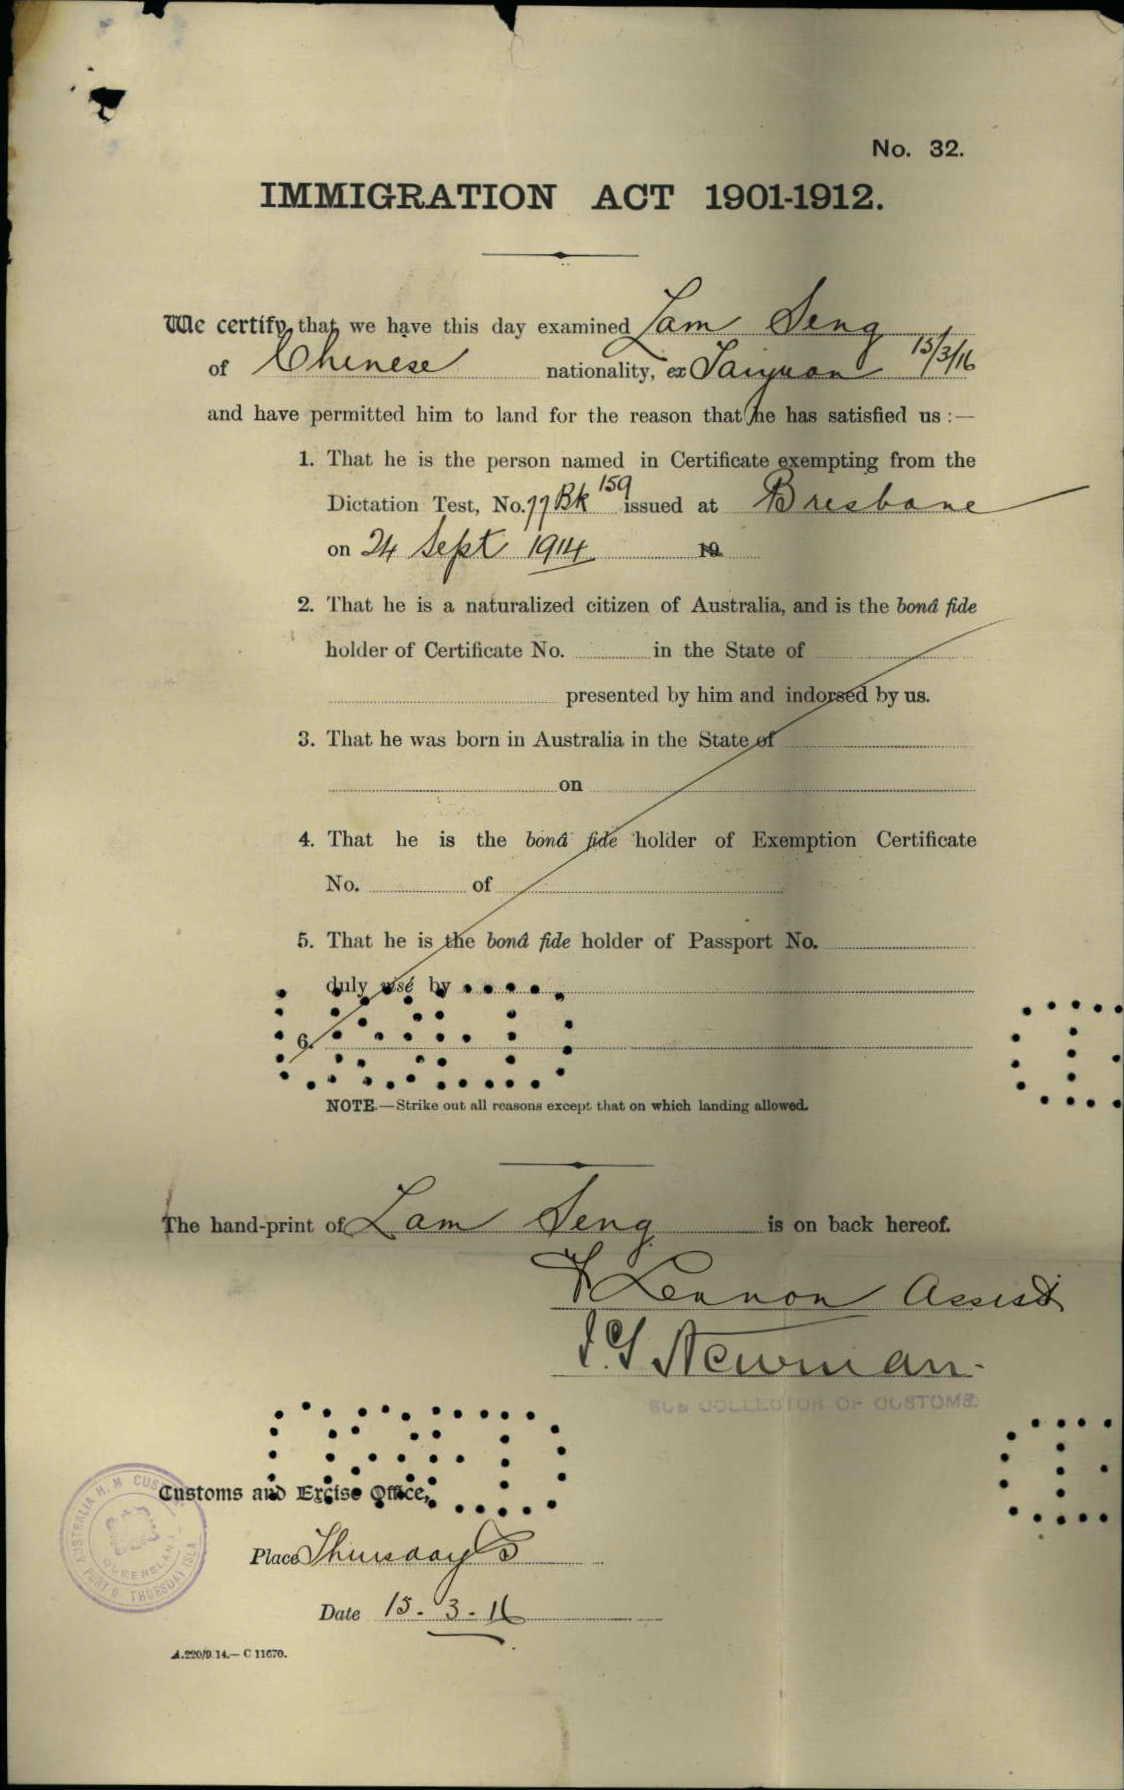 No. 32.
IMMIGRATION ACT 1901-1912.
We certify that we have this day examined Lam Seng
of Chinese nationality, ex Taiyuan 15/3/16
and have permitted him to land for the reason that he has satisfied us :—
1. That he is the person named in Certificate exempting from the
Dictation Test, No. 77 Bk 159 issued at Brisbane
on 24 Sept 1914 19
2. That he is a naturalized citizen of Australia, and is the bonâ fide
holder of Certificate No. in the State of
presented by him and indorsed by us.
3. That he was born in Australia in the State of
on
4. That he is the bonâ fide holder of Exemption Certificate
No. of
5. That he is the bonâ fide holder of Passport No.
duly visé by
6.
NOTE.—Strike out all reasons except that on which landing allowed.
The hand-print of Lam Seng is on back hereof.
F Lennon Assist
J.G Newman.
SUB COLLECTOR OF CUSTOMS.
Customs and Excise Office,
AUSTRALIA H. M CUSTOMS
QUEENSLAND
PORT O THURSDAY ISLA
Place Thursday I
Date 15-3-16
A.220/9.14.—C 11670.